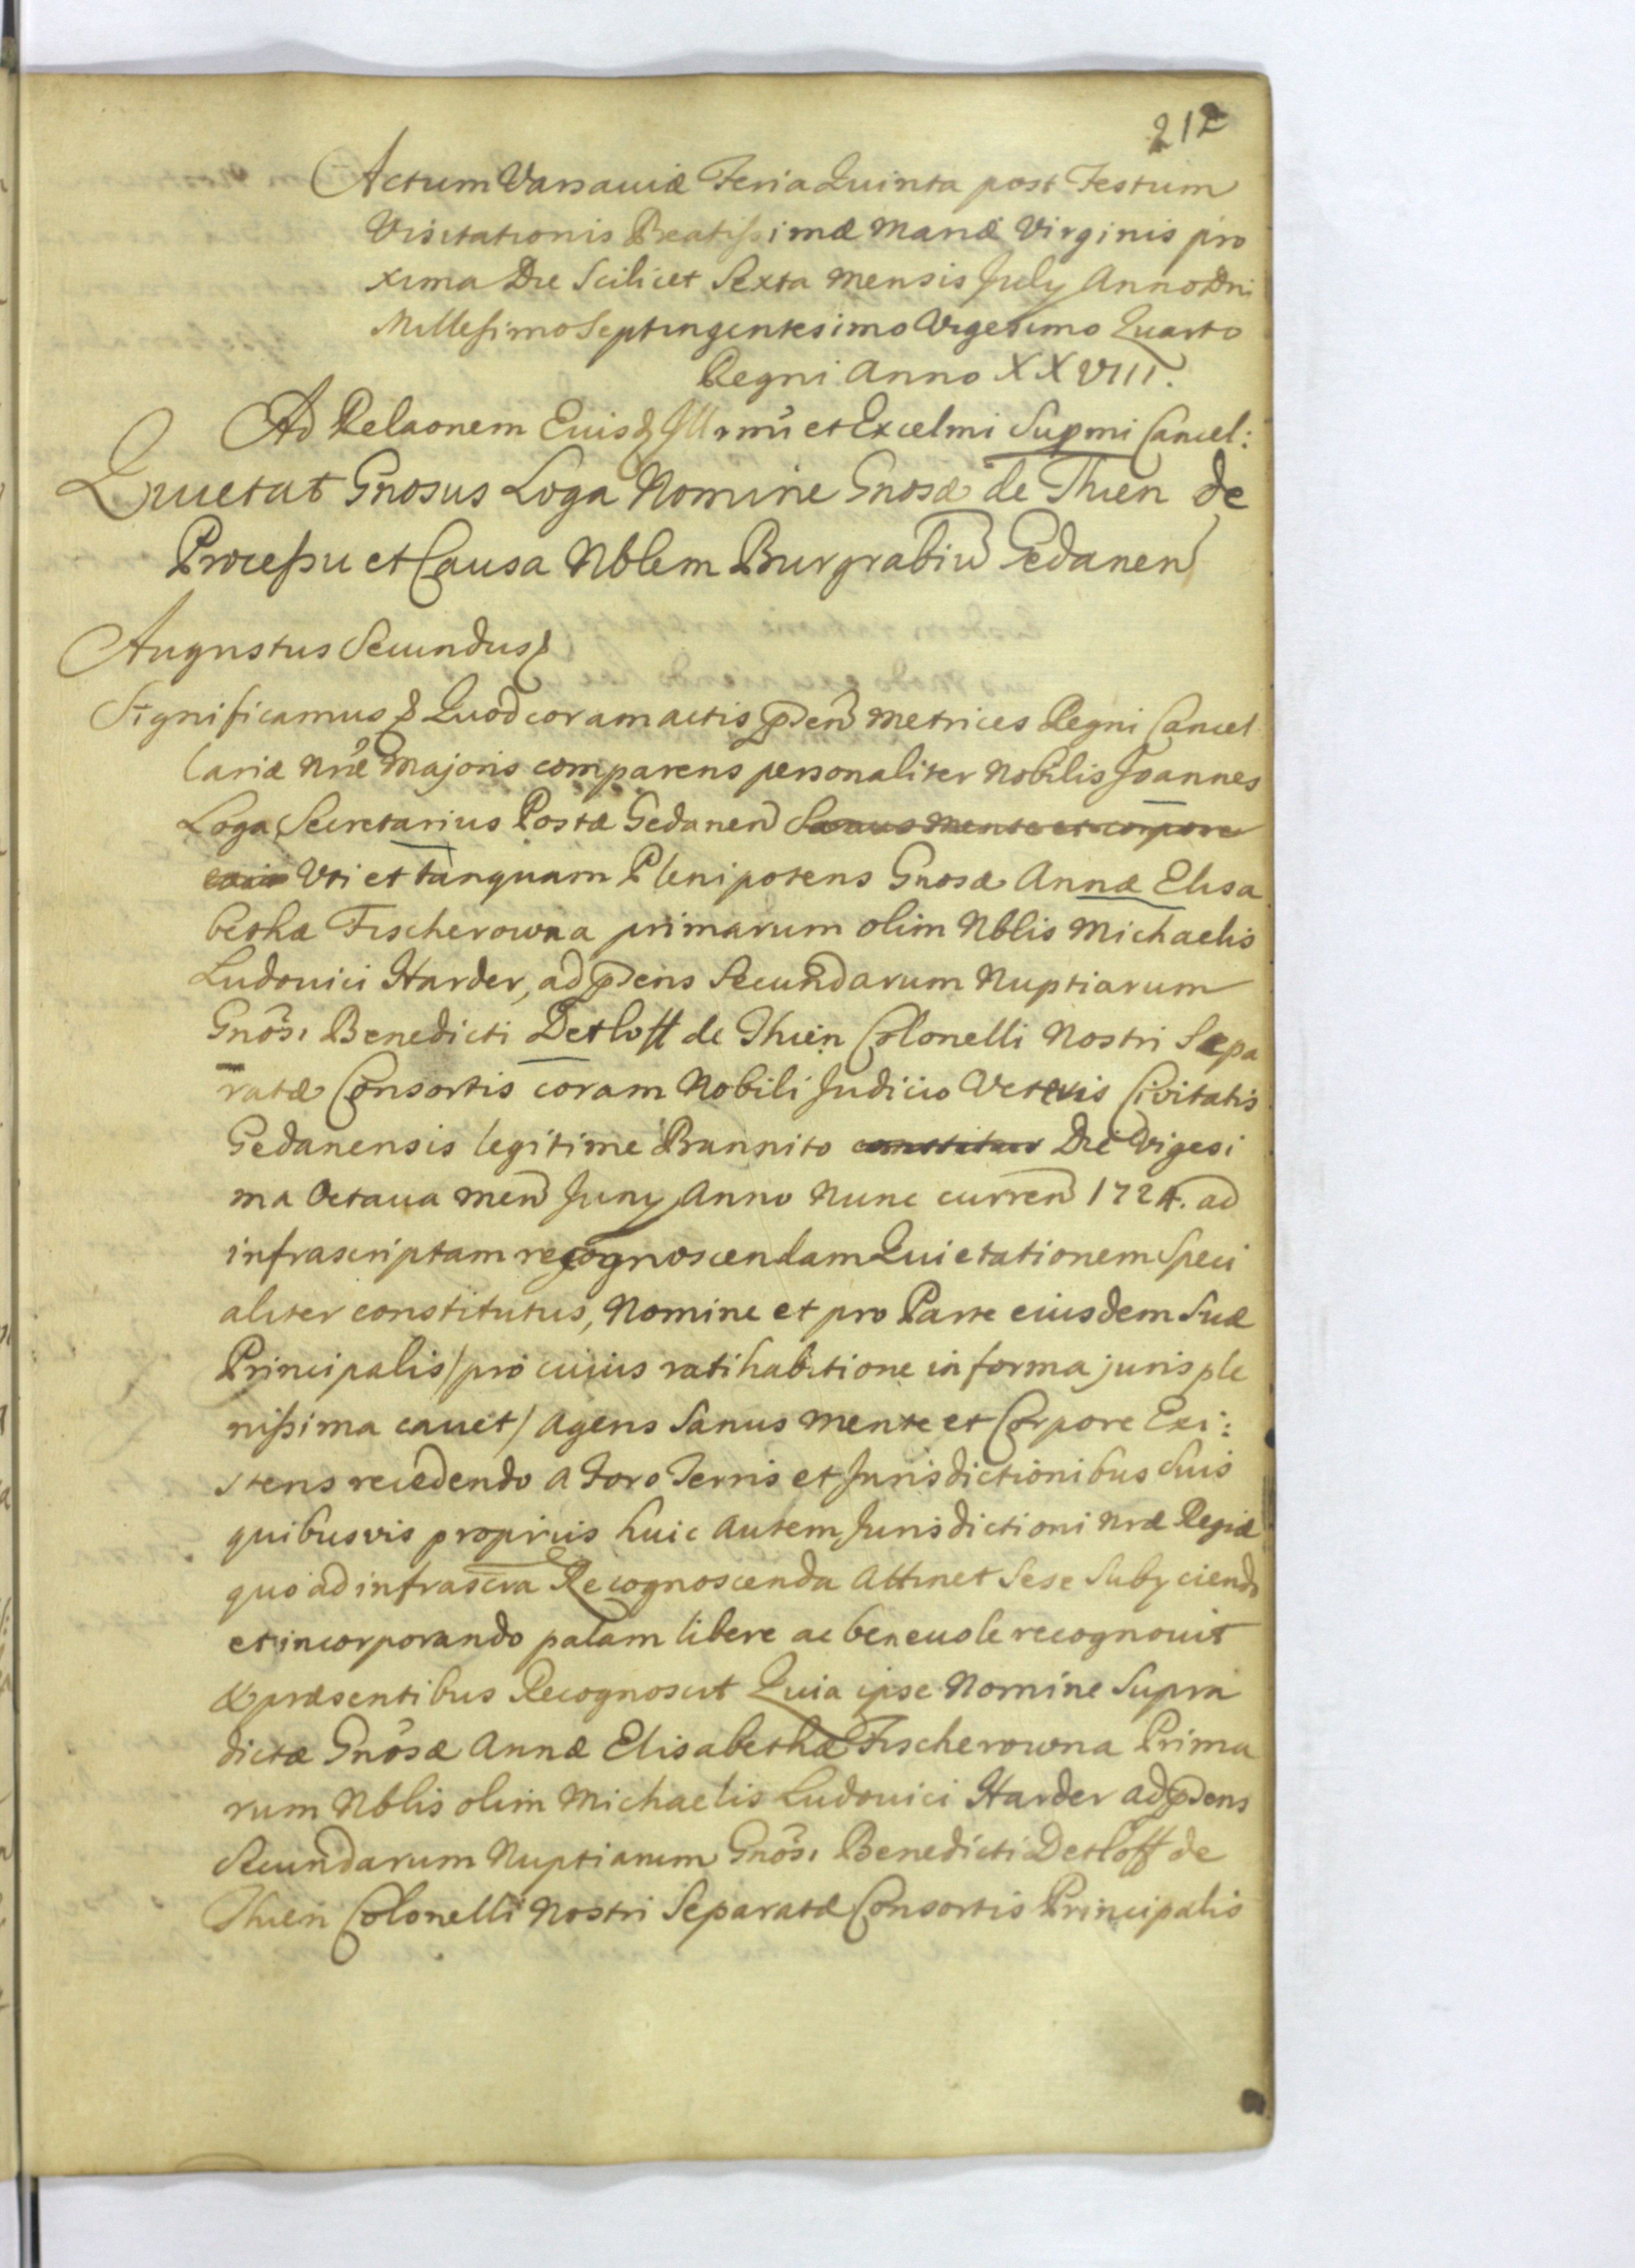 212
Actum Varsaviæ Feria Quinta post Festum
Visitationis Beatissimæ Mariæ Virginis pro
xima Die Scilicet Sexta Mensis July Anno Dni
Millesimo Septingentesimo Vigesimo Quarto
Regni Anno XXVIII.
Ad Relaonem Eius Illrmi et Excelmi Supmi Cancel:
Quietat Gnosus Loga Nomine Gnosæ de Thien de
Processu et Causa Nblem Burgrabiu Gedanen
Augustus Secundus
Significamus Quod coram actis pden Metrices Regni Cancel
lariæ Nræ Majoris comparens personaliter Nobilis Joannes
Loga Secretarius Postæ Gedanen Sanus mente et corpore
Uti et tanquam Plenipotens Gnosæ Annæ Elisa
bethæ Fischerowna primarum olim Nblis Michaelis
Ludovici Harder, ad pdens Secundarum Nuptiarum
Gnosi Benedicti Detloff de Thien Colonelli Nostri Sepa
ratæ Consortis coram Nobili Judicio Veteris Civitatis
Gedanensis legitime Bannito constitus Die Vigesi
ma Octava men Juny Anno Nunc curren 1724. ad
infrascriptam recognoscendam Quietationem Speci
aliter constitutus, Nomine et pro Parte eiusdem Suæ
Principalis /pro cuius ratihabitione in forma juris ple
nissima cavet/ Agens Sanus mente et Corpore Exi:
stens recedendo a Foro Terris et Jurisdictionibus Suis
quibusvis propriis huic autem Jurisdictioni Nræ Regiæ
quo ad infrascra Recognoscenda Attinet Sese Subyciendo
et incorporando palam libere ac benevole recognovit
& præsentibus Recognoscit Quia ipse Nomine Supra
dictæ Gnosæ Annæ Elisabethæ Fischerowna Prima
rum Nblis olim Michaelis Ludovici Harder ad pdens
Secundarum Nuptiarum Gnosi Benedicti Detloff de
Thien Colonelli Nostri Separatæ Consortis Principalis